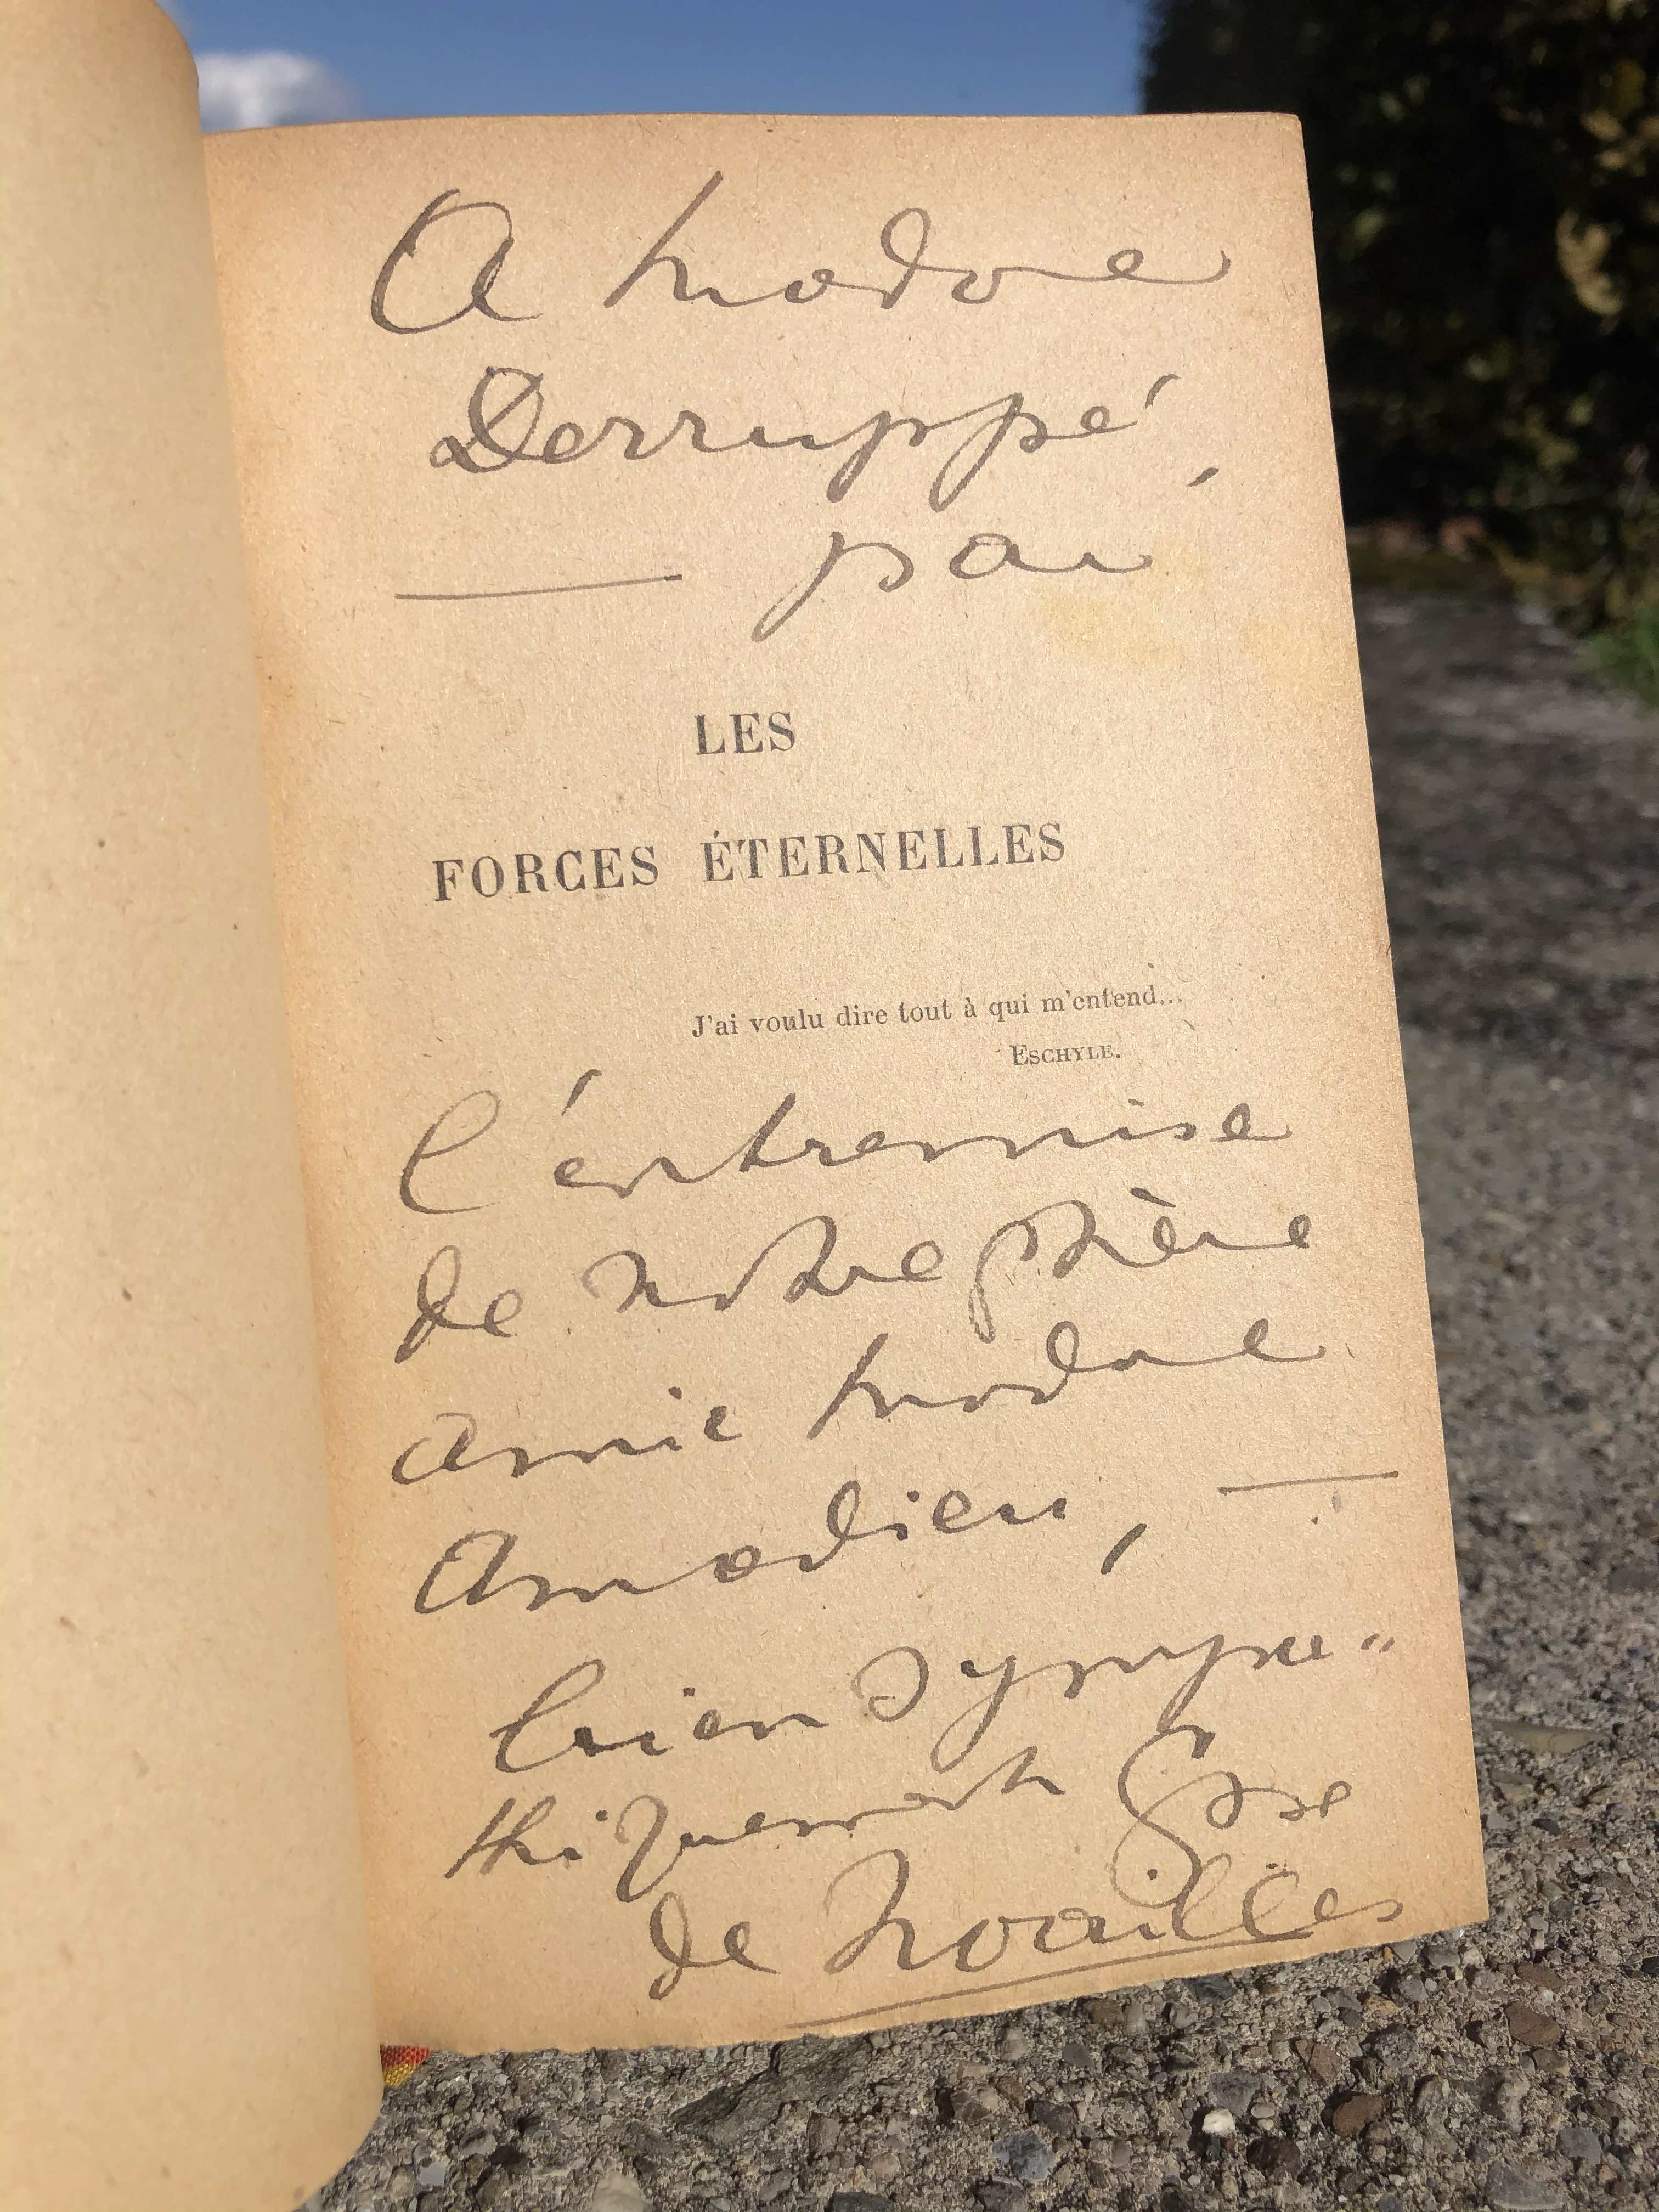 A Madame
Derruppé,
— par
LES
FORCES ÉTERNELLES
J'ai voulu dire tout à qui m'entend...
ESCHYLE.
l'entremise
de notre chère
amie Madame
Amadieu, —
bien sympa=
thiquement Csse
de Noailles